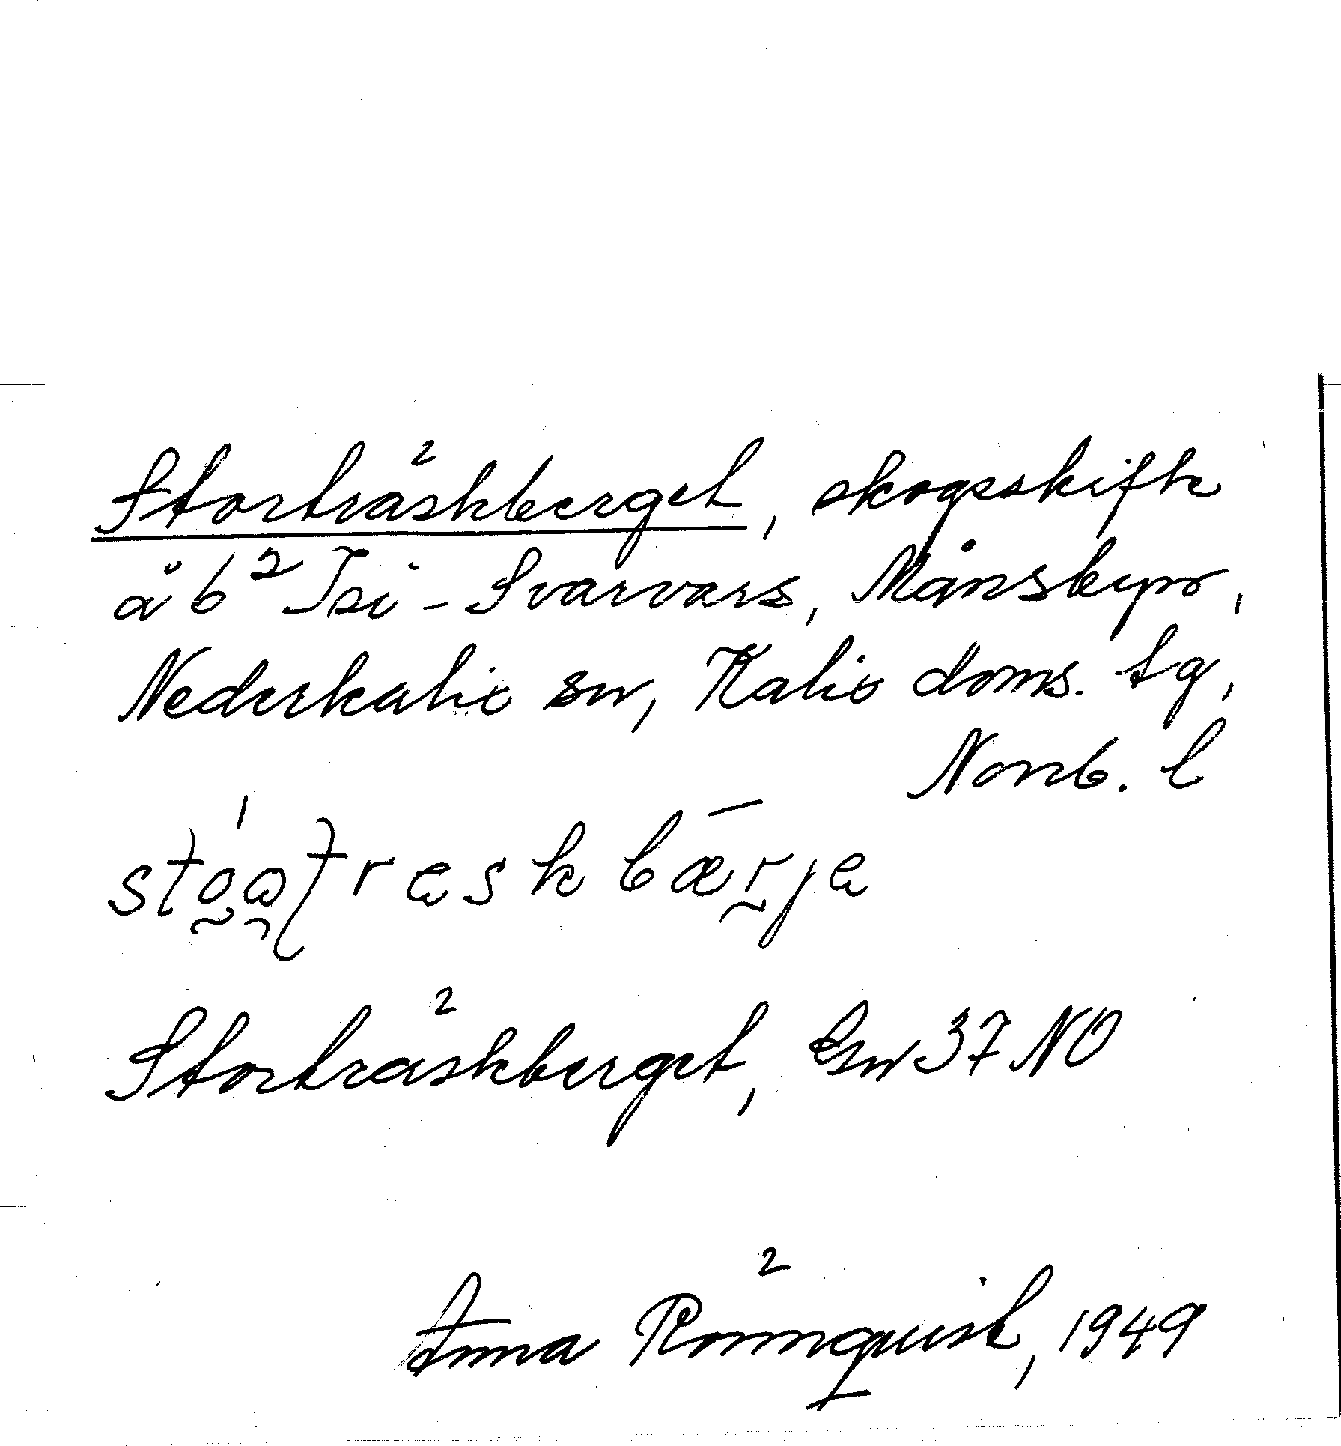 Storträskberget, skogsskifte
å b² Isi - Svarvars, Månsbyn,
Nederkalix sn, Kalix doms. tg,
Norrb. l
Storträskberget, Gsv 37 NO
Anna Rönnquist, 1949